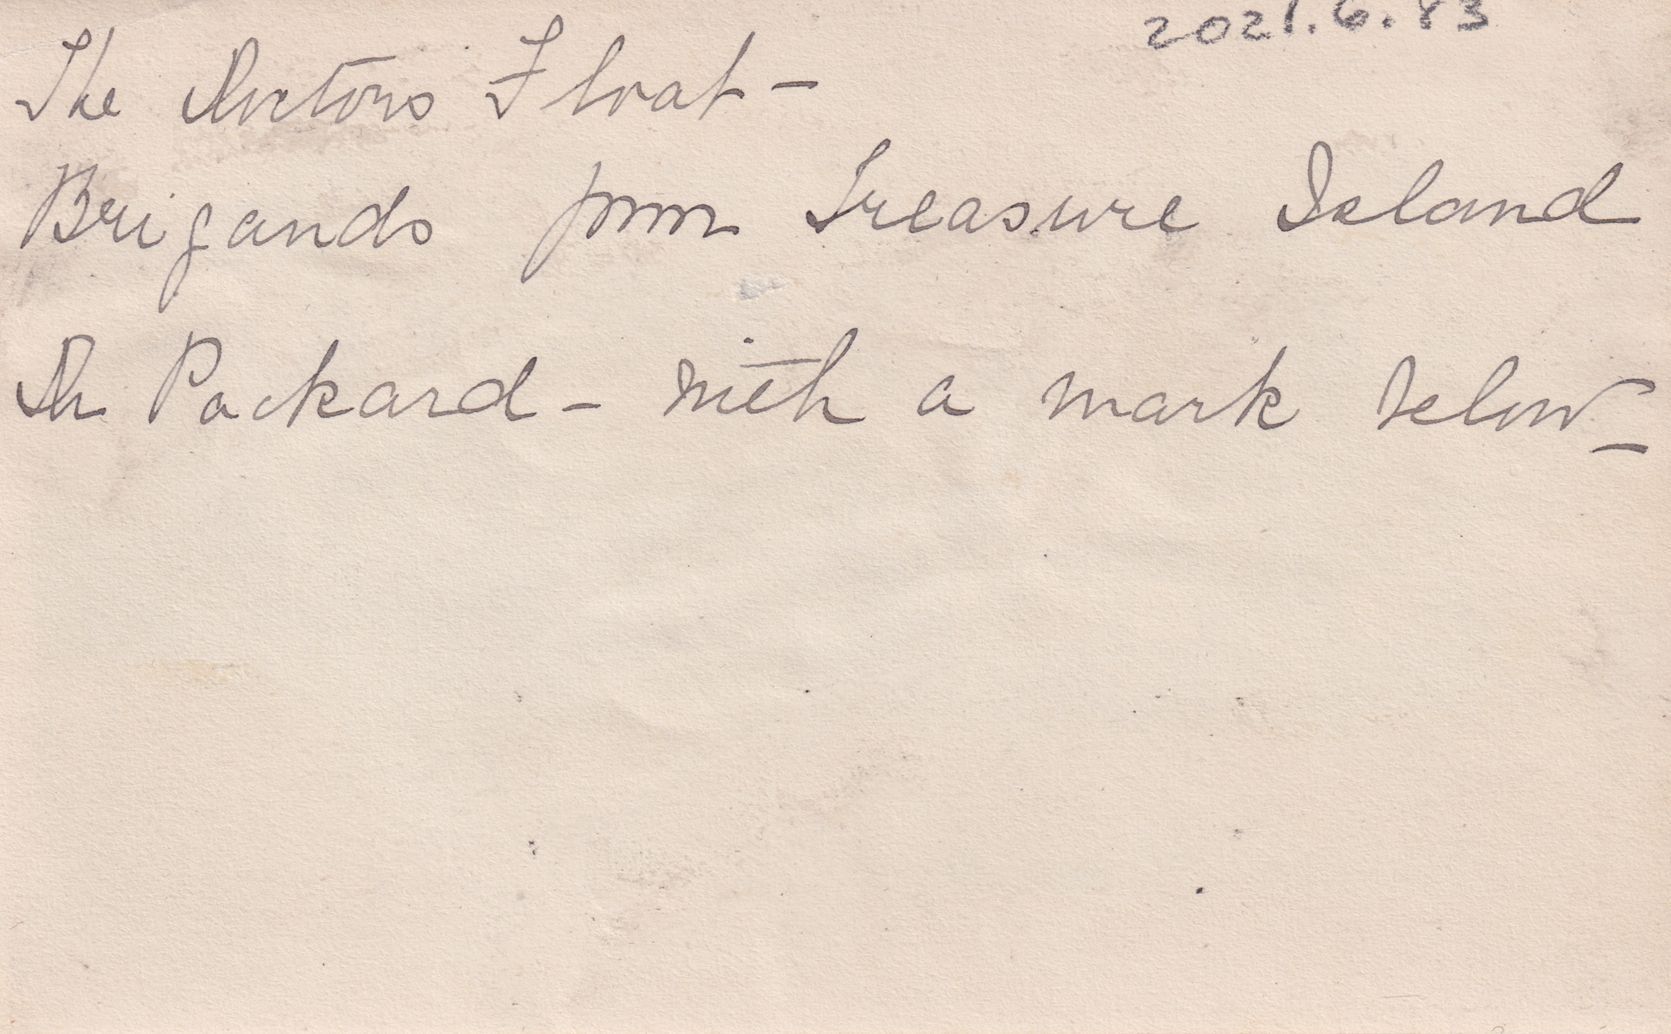 2021.6.83
The Doctors Float –
Brigands from Treasure Island
Dr Packard – with a mark below –